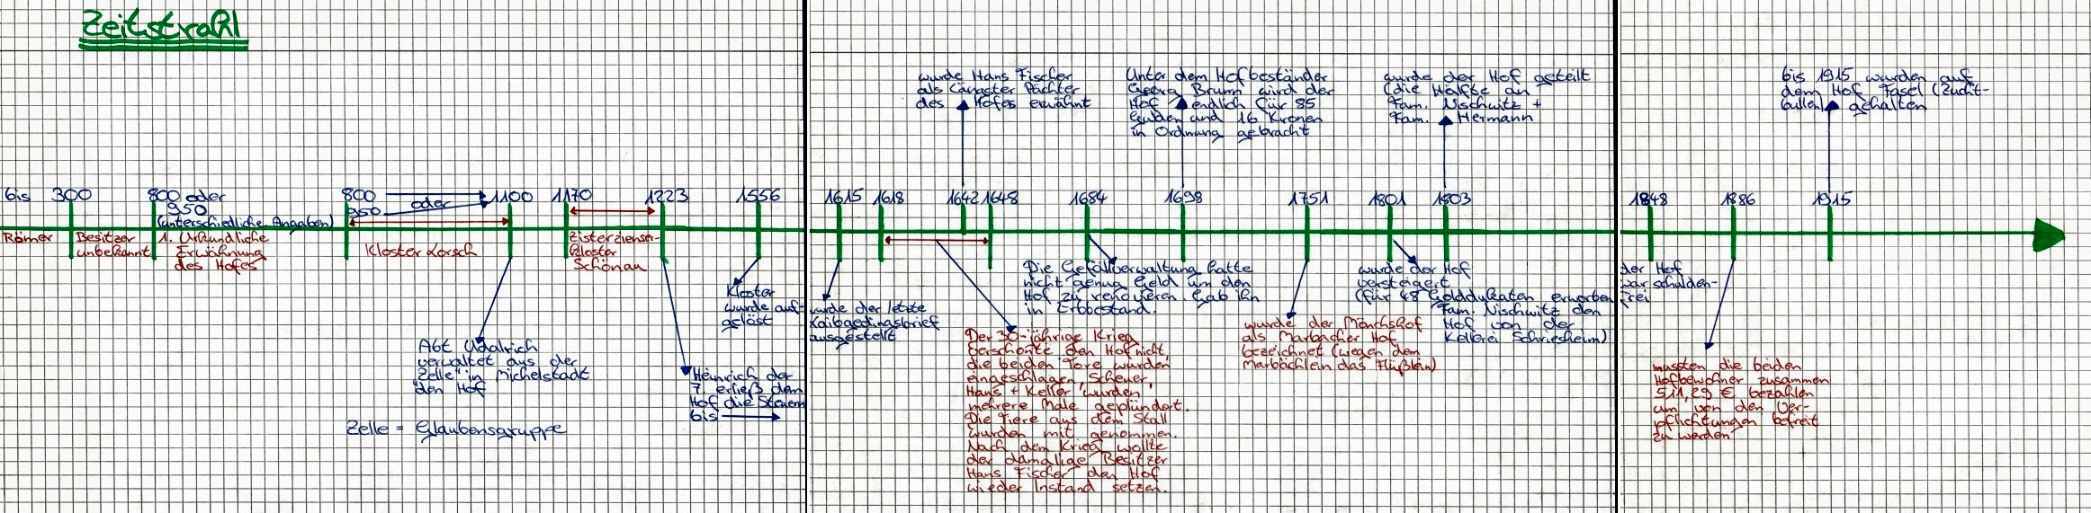 Zeitstrahl
bis 300
Römer
Besitzer
unbekannt
800 oder
950
(unterschiedliche Angaben)
1. Urkundliche
Erwähnung
des Hofes
800
950
oder
1100
Kloster Lorsch
Abt Udalrich
verwaltet aus der
"Zelle" in Michelstadt
den Hof
Zelle = Glaubensgruppe
1170
1223
Zisterzienser-
kloster
Schönau
Heinrich der
7 erließ dem
Hof die Steuern
bis
1556
Kloster
wurde auf-
gelöst
1615
wurde der letzte
ausgestellt
1618
1642
1648
wurde Hans Fischer
als Pächter
des Hofes erwähnt
Der 30-jährige Krieg
verschonte den Hof nicht,
die beiden Tore wurden
eingeschlagen, Scheuer,
Hans + Keller wurden
mehrere Male geplündert.
Die Tiere aus dem Stall
wurden mit genommen.
Nach dem Krieg wollte
der damalige Besitzer
Hans Fischer den Hof
wieder Instand setzen.
1684
Die Gefällverwaltung hatte
nicht genug Geld um den
Hof zu renovieren. Gab ihn
in Erbbestand.
1698
Unter dem Hofbeständer
Georg Brunn wird der
Hof endlich für 85
Gulden und 16 Kronen
in Ordnung gebracht
1751
wurde der Mönchshof
als Marbacher Hof
bezeichnet (wegen dem
Marbächlein das Flüßlein)
1801
wurde der Hof
versteigert
(für 48 Golddukaten erworben
Fam. Nischwitz den
Hof von der
Kellerei Schriesheim)
1803
wurde der Hof geteilt
(die Hälfte an
Fam. Nischwitz +
Fam. Hermann
1848
der Hof
war schulden-
frei
1886
mussten die beiden
Hofbewohner zusammen
511,29 € bezahlen
um von den Ver-
pflichtungen befreit
zu werden
1915
bis 1915 wurden auf
dem Hof Fasel (Zucht-
bullen) gehalten